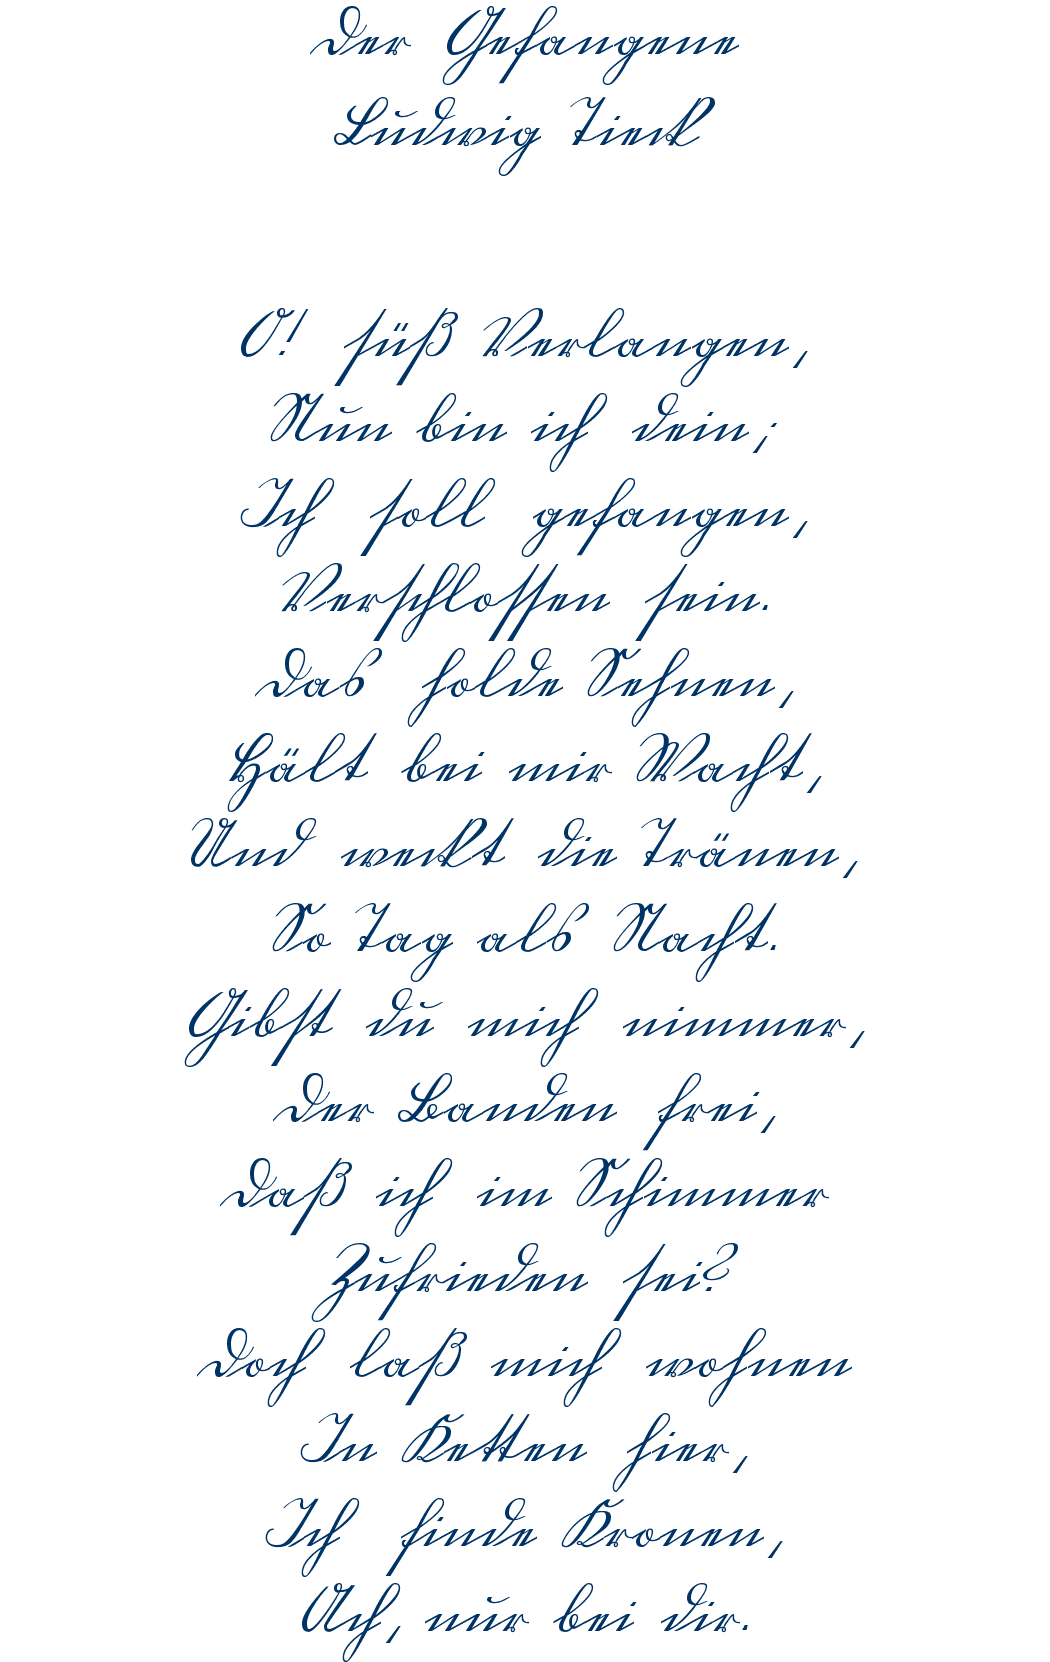 Der Gefangene
Ludwig Tieck
O! süß Verlangen,
Nun bin ich dein;
Ich soll gefangen,
Verschlossen sein.
Das holde Sehnen,
Hält bei mir Wacht,
Und weckt die Tränen,
So Tag als Nacht.
Gibst du mich nimmer,
Der Banden frei,
Daß ich im Schimmer
Zufrieden sei?
Doch laß mich wohnen
In Ketten hier,
Ich finde Kronen,
Ach, nur bei dir.